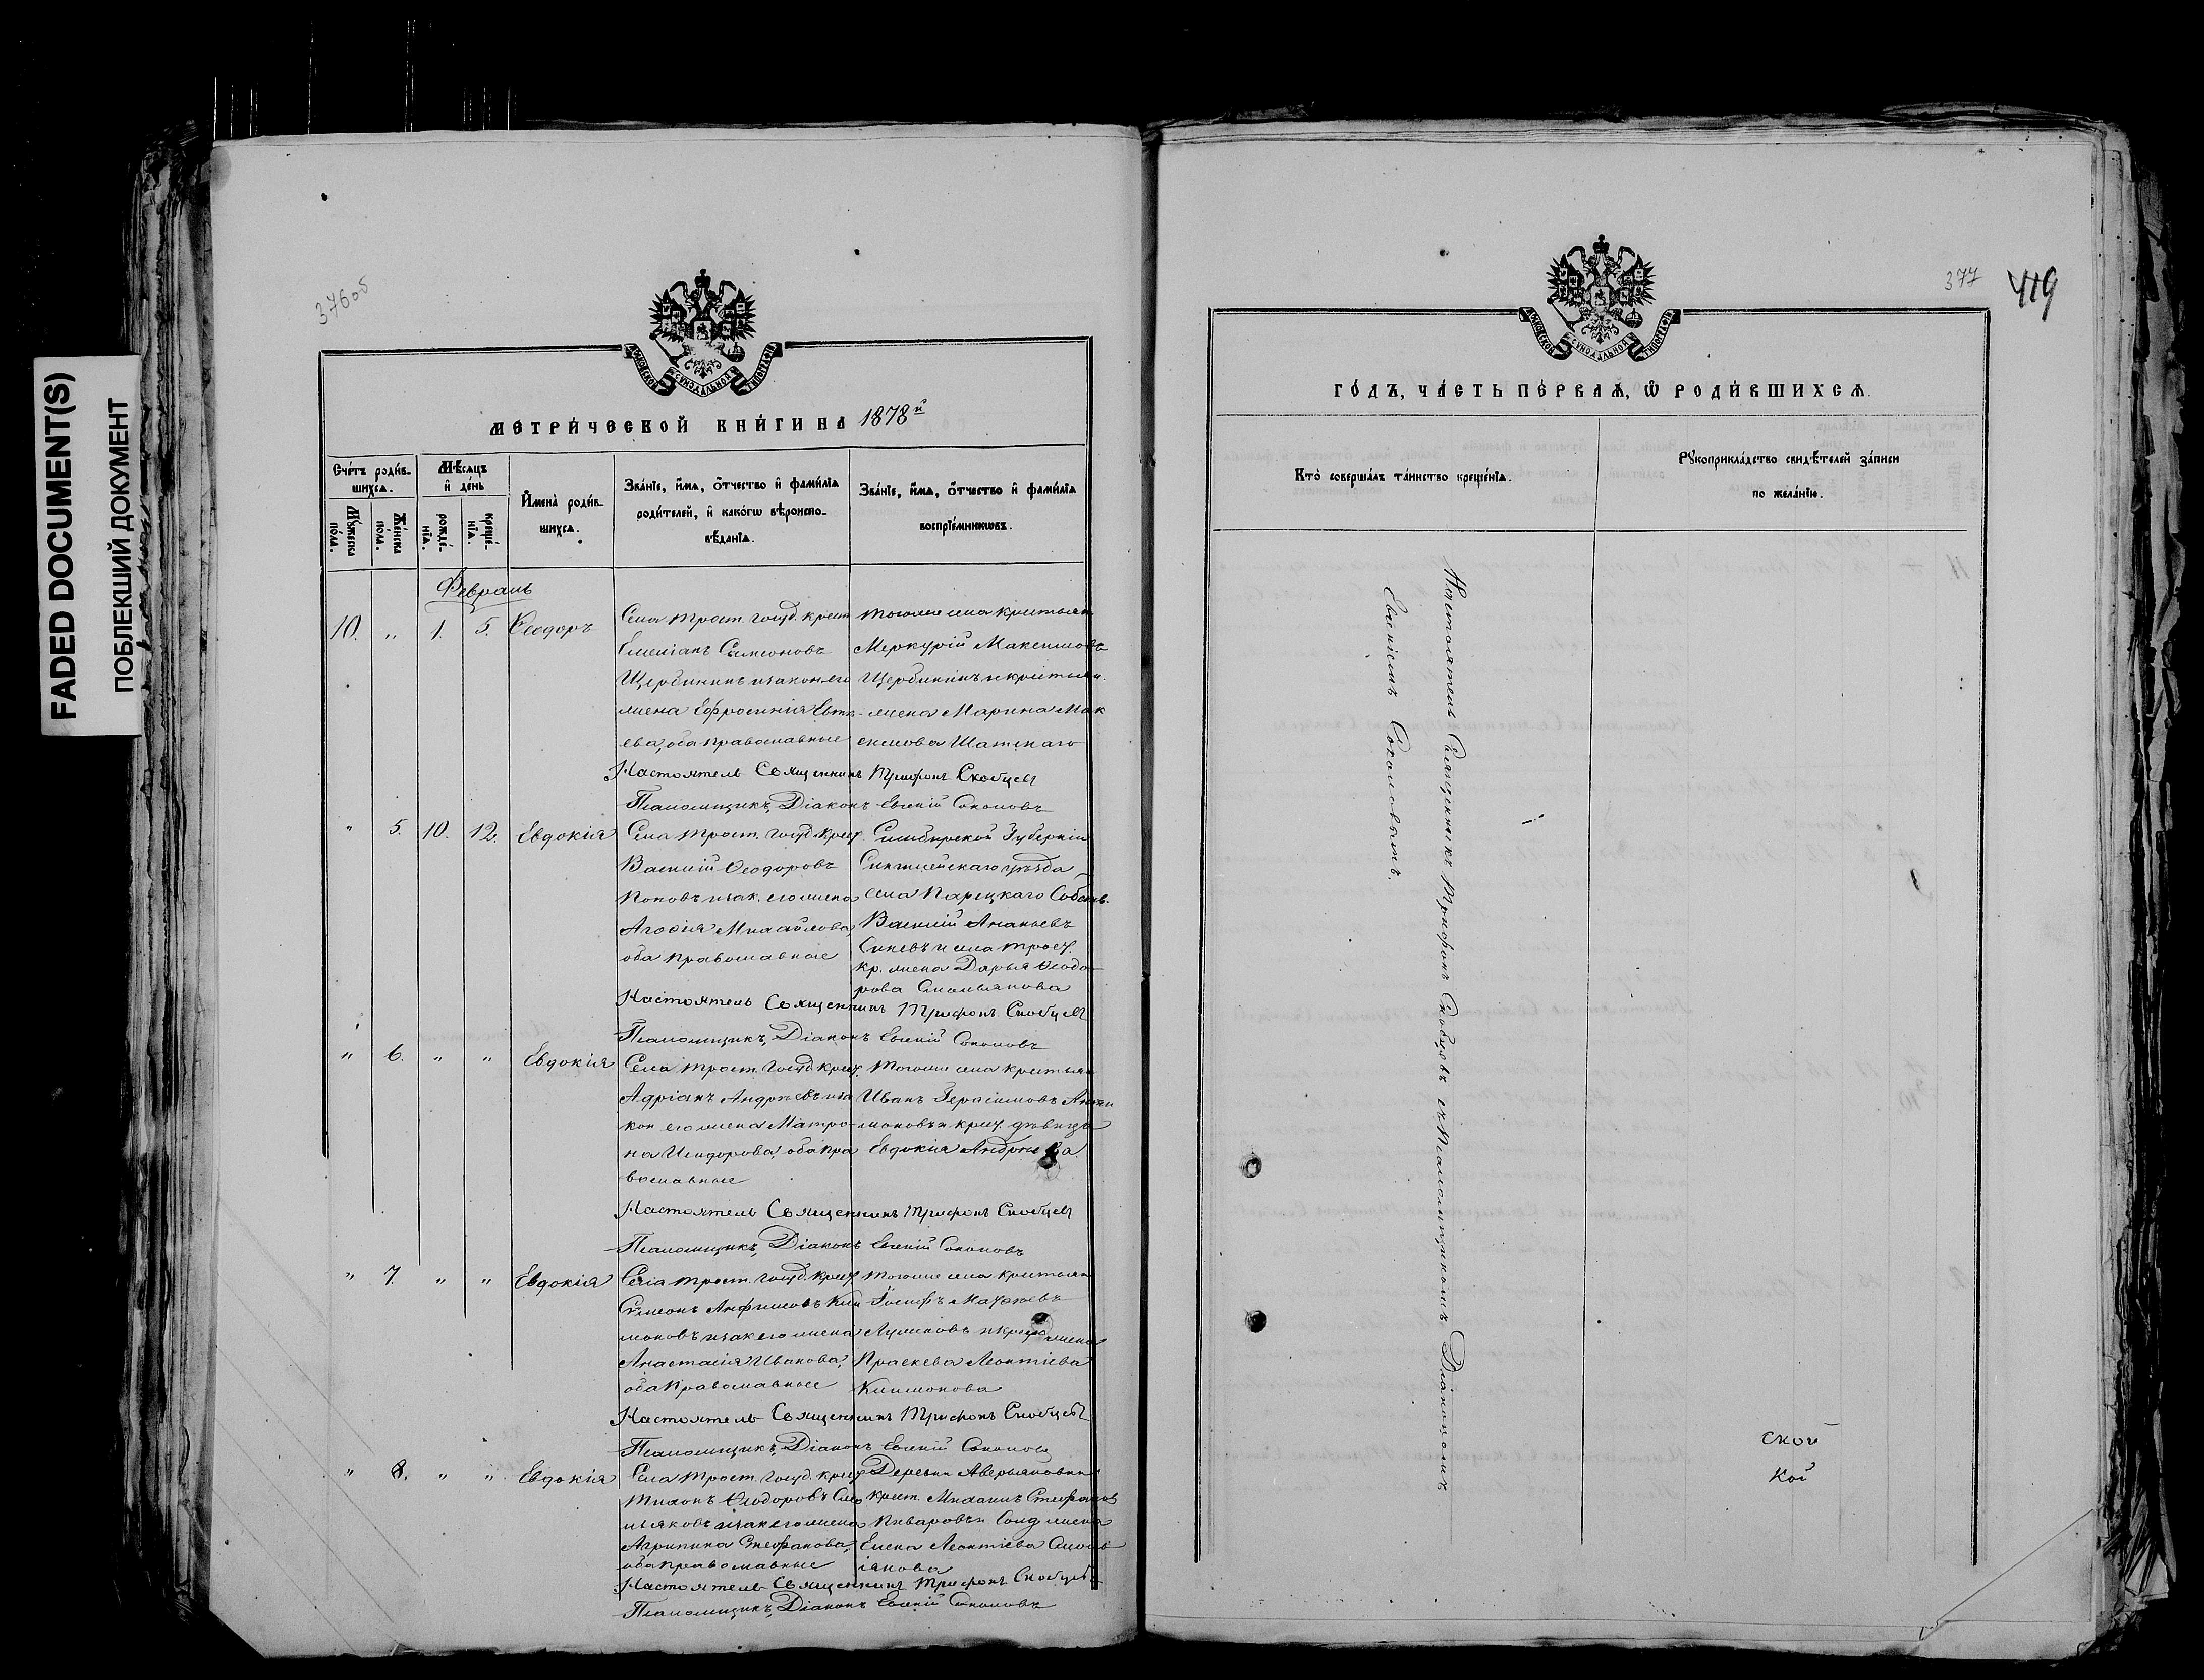 FADED DOCUMENT(S)
ПОБЛЕКШИЙ ДОКУМЕНТ
376об
МОСКОВСКОЙ СѴНОДАЛЬНОЙ ТИПОГРАФІИ
МЕТРИ́ЧЕСКОЙ КНИ́ГИ НА 1878й
Сче́тъ роди́в-
шихсѧ.
Мѣ́сѧцъ
и҆ де́нь
И҆мена̀ роди́в-
шихсѧ.
Зва́нїе, и҆́мѧ, ѻ҆́тчество и҆ фами́лїѧ
роди́телей, и҆ како́гѡ вѣроиспо-
вѣ́данїѧ.
Зва́нїе, и҆́мѧ, ѻ҆́тчество и҆ фами́лїѧ
воспрїе́мникѡвъ.
Мꙋ́жеска
по́ла.
Же́нска
по́ла.
рожде́-
нїѧ.
креще́-
нїѧ.
Февраль
10. " 1. 5. Ѳеодоръ
Села Трост. госуд. крест
Емеліанъ Симеоновъ
Щербининъ и законная его
жена Ефросинія
ева, оба православные
Тогоже села крестьян
Меркурій Максимовъ
Щербининъ и крестьян.
жена Марина Мак
симова Шатскаго
Настоятель Священникъ Трифонъ Скобцевъ
Псаломщикъ, Діаконъ Евгеній Соколовъ
" 5. 10. 12. Евдокія
Села Трост. госуд. крест.
Василій Ѳеодоровъ
Поповъ и зак. его жена
Агаѳія Михайлова,
оба православные
Симбирской Губерніи
уѣзда
села
Василій Ананьевъ
Синевъ и села Трост.
кр. жена Дарья Ѳеодо
рова Смольянова
Настоятель Священникъ Трифонъ Скобцевъ
Псаломщикъ, Діаконъ Евгеній Соколовъ
" 6. " " Евдокія
Села Трост. госуд. крест.
Адріанъ Андреевъ и за
кон его жена Матро-
на Исидорова, оба пра
вославные
Тогоже села крестьян
Иванъ Герасимовъ
моновъ и крест. дѣвица
Евдокія Андреева
Настоятель Священникъ Трифонъ Скобцевъ
Псаломщикъ, Діаконъ Евгеній Соколовъ
" 7. " " Евдокія
Села Трост. госуд. крест
Симеонъ Анфимовъ Кли
моновъ и зак его жена
Анастасія Иванова,
оба православные
Тогоже села крестьян
Іосифъ Матѳеевъ
и крест жена
Праскева Леонтіева
Климонова
Настоятель Священникъ Трифонъ Скобцевъ
Псаломщикъ, Діаконъ Евгеній Соколовъ
" 8. " " Евдокія
Села Трост. госуд. крест
Тихонъ Ѳеодоровъ Смо
льяковъ и зак его жена
Агрипина Стефанова,
оба православные
Деревни Аверьяновки
крест. Михаилъ Стефановъ
Пиваровъ и Солд жена
Елена Леонтіева Смоль
янова
Настоятель Священникъ Трифонъ Скобцевъ
Псаломщикъ, Діаконъ Евгеній Соколовъ
377
419
МОСКОВСКОЙ СѴНОДАЛЬНОЙ ТИПОГРАФІИ
ГО́ДЪ, ЧА́СТЬ ПЕ́РВАѦ, Ѡ҆ РОДИ́ВШИХСѦ.
Кто̀ соверша́лъ та́инство креще́нїѧ.
Рꙋкоприкла́дство свидѣ́телей за́писи
по жела́нїю.
Настоятель Священникъ Трифонъ Скобцевъ съ Псаломщикомъ Діакономъ
Евгеніемъ Соколовымъ.
ской
кой